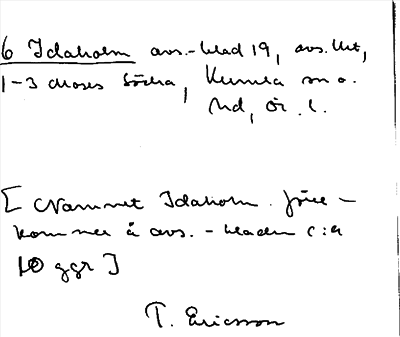 6 Idaholm avs.-blad 19, avs. Utt,
1-3 choses Södra, Kumla sn o.
hd, Ör. l.
[Namnet Idaholm före-
kommer å avs.-bladen c:a
10 ggr]
T. Ericsson